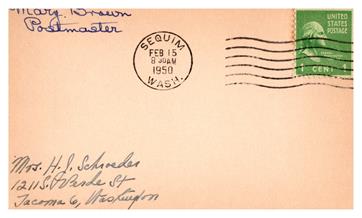 Mary Brown
Postmaster
SEQUIM
FEB 15
8 30 AM
1950
WASH.
UNITED STATES
POSTAGE
1 CENT 1
Mrs. H. J. Schroeder
1211 S.
St
Tacoma 6, Washington